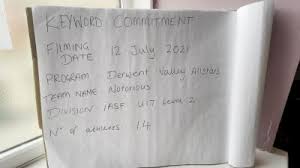 KEYWORD COMMITMENT
FILMING DATE 12 July 2021
PROGRAM Derwent Valley Allstars
TEAM NAME Notorious
DIVISION IASF U17 Level 2
N° of athletes 14